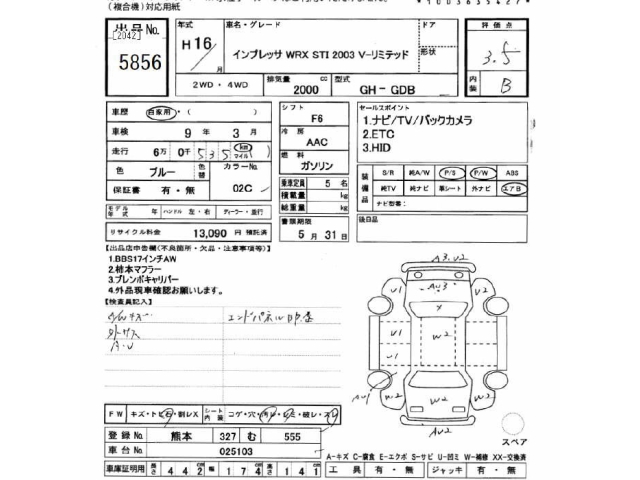 (複合機)対応用紙
出品No.
[2042]
5856
年式
H16月
車名・グレード
インプレッサ WRX STI 2003 V-リミテッド
ドア
形状
評価点
3.5
内装
B
2WD・4WD
排気量
cc
2000
型式
GH-GDB
車歴
自家用・( )
車検
9年 3月
走行
6万 0千535
km
マイル
色
ブルー
色替
カラーNo.
02C
保証書
有・無
シフト
F6
冷房
AAC
燃料
ガソリン
セールスポイント
1.ナビ/TV/バックカメラ
2.ETC
3.HID
乗車定員 5名
積載量 kg
総重量 kg
装備品
S/R 純A/W P/S P/W ABS
純TV 純ナビ 革シート 外ナビ エアB
ナビ型番:
モデル年式 年 ハンドル 左・右 ディーラー・並行
書類期限
5月31日
後日品
リサイクル料金 13,090円 預託済
【出品店申告欄(不良箇所・欠品・注意事項等)】
1.BBS17インチAW
2.柿本マフラー
3.ブレンボキャリパー
4.外品現車確認お願いします。
【検査員記入】
外サス
A・U
エンドパネル凹歪
A3.U2
U1
AU3
U1
W2
U1
U1
W2
W2
W2
AU1
AU2
スペア
FW キズ・トビ石・割レス
シート内装
コゲ・穴・汚レ・シミ・破レ・スリ
登録No. 熊本 327 む 555
車台No. 025103
A-キズ C-腐食 E-エクボ S-サビ U-凹ミ W-補修 XX-交換済
車庫証明用 長さ 442 幅 174 高さ 141
工具 有・無 ジャッキ 有・無